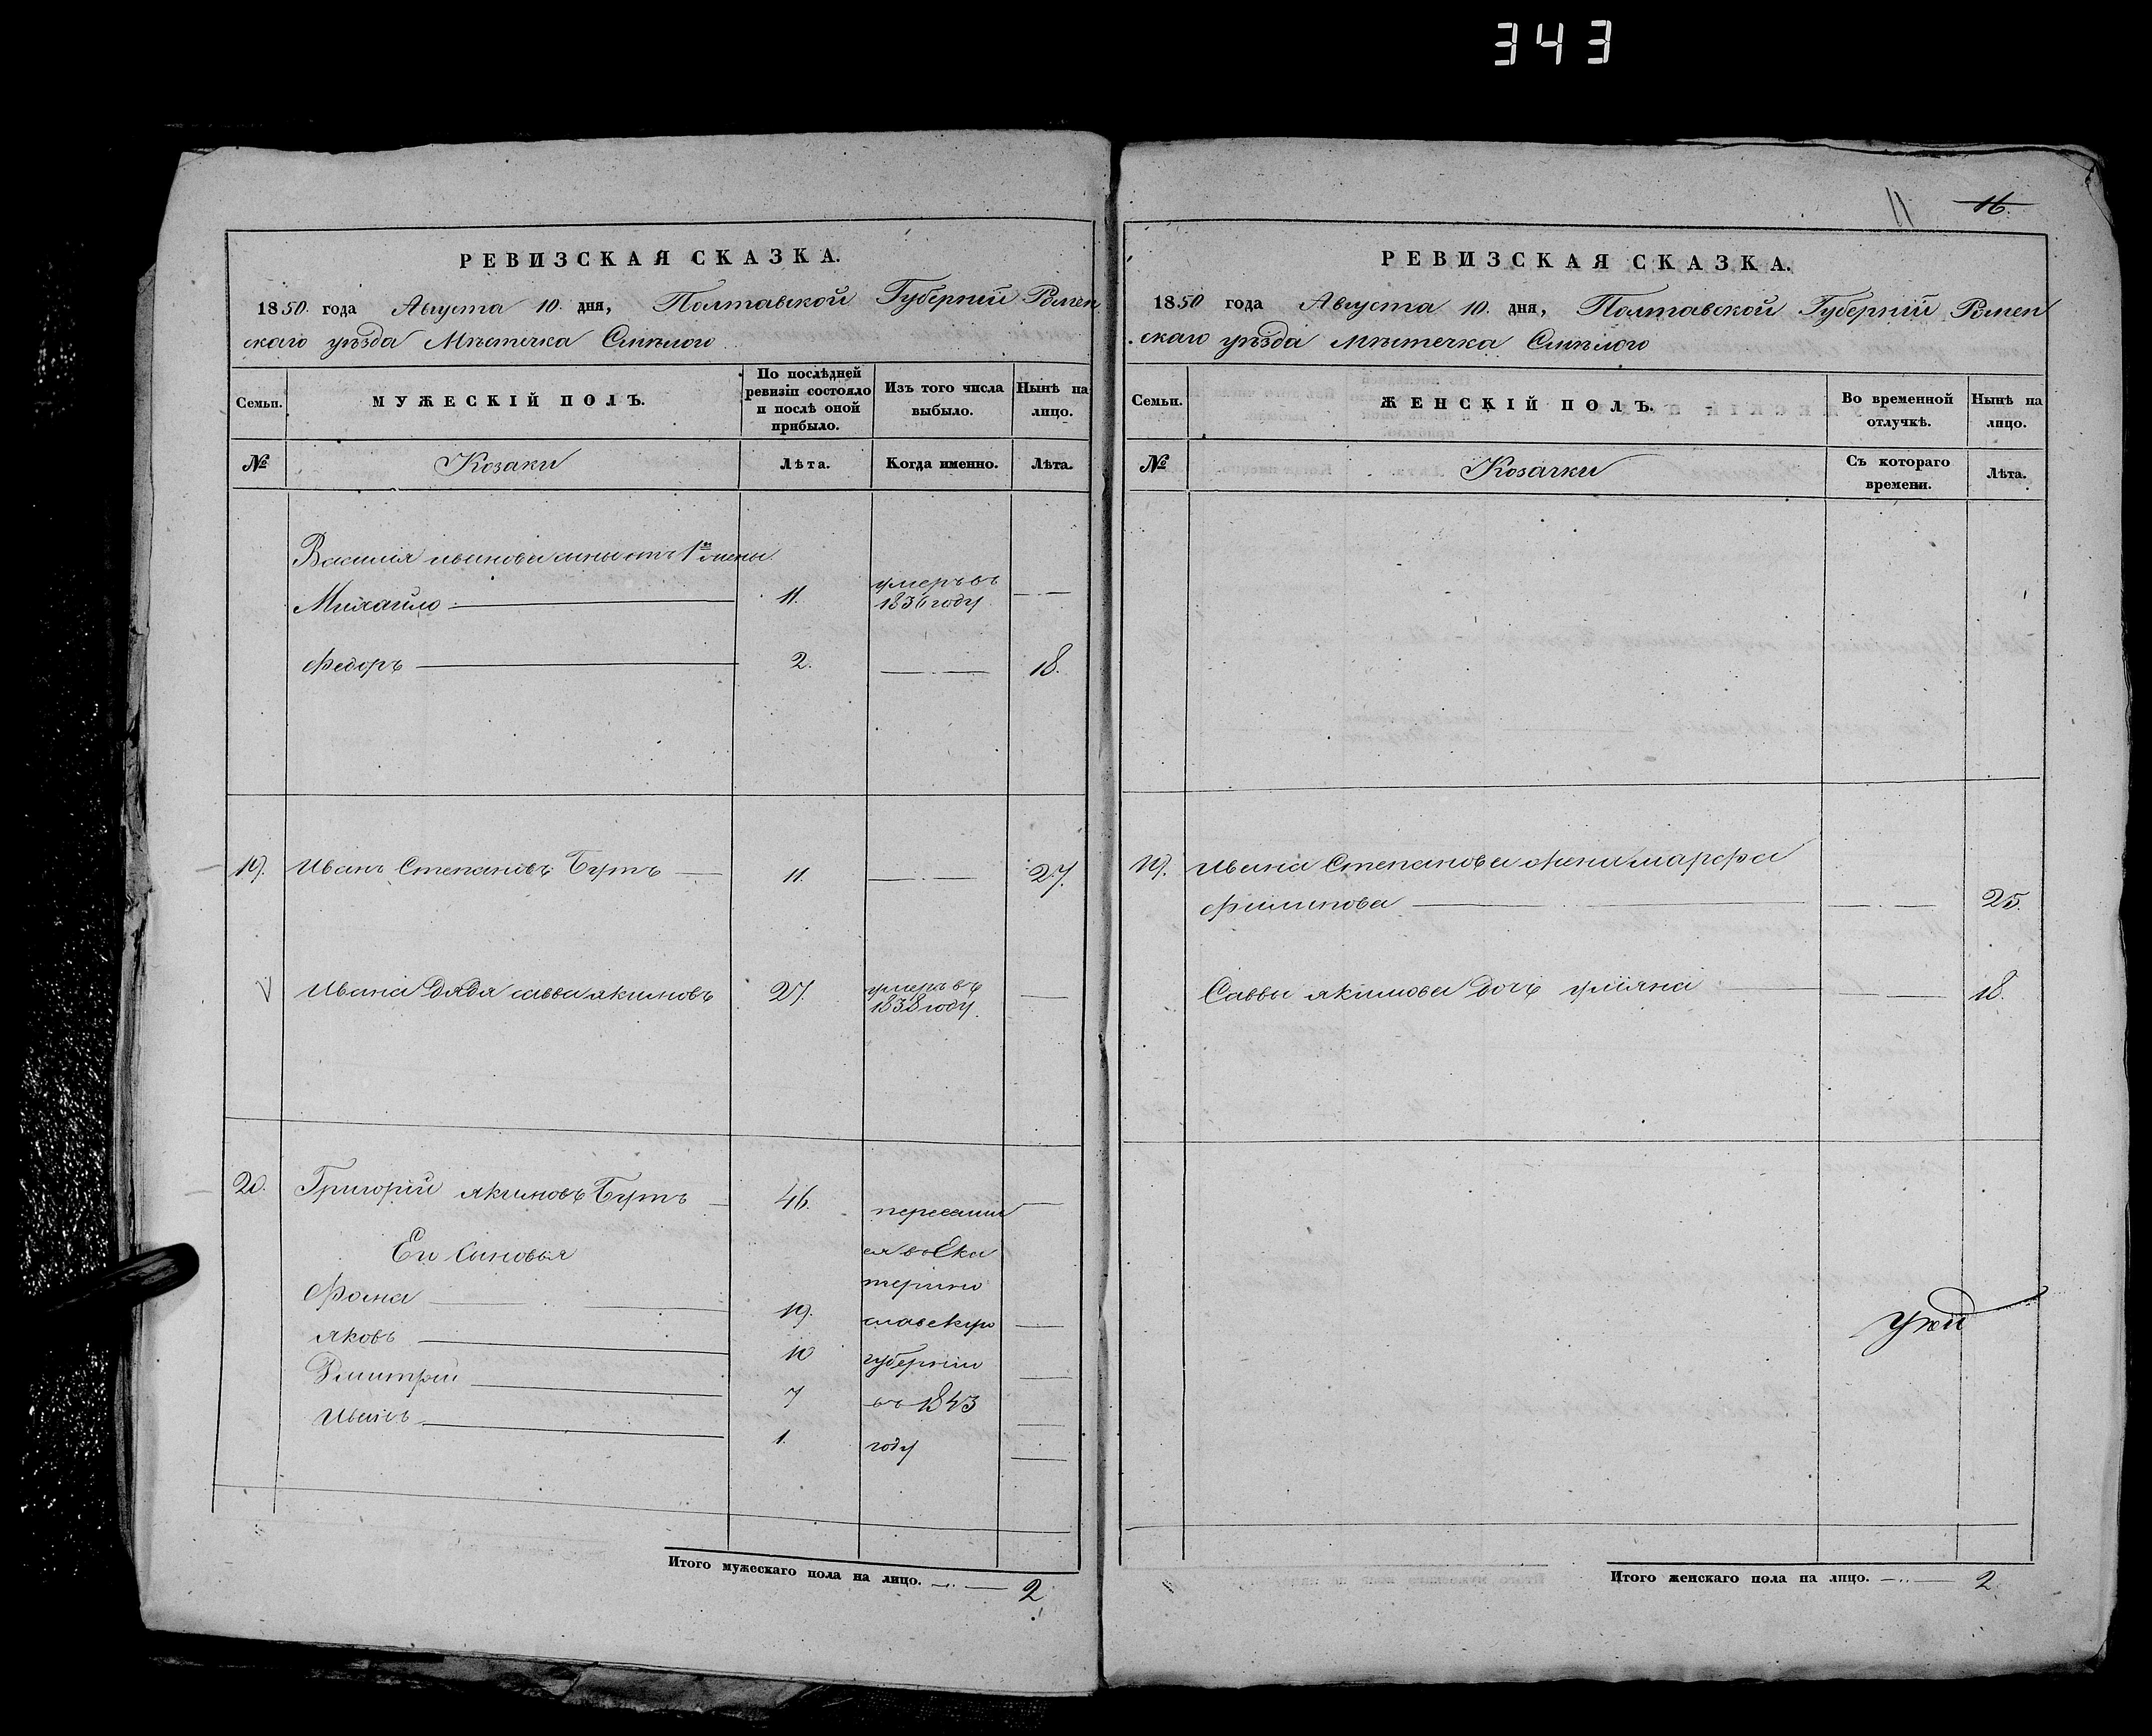 343
РЕВИЗСКАЯ СКАЗКА.
1850. года Августа 10. дня, Полтавской Губерніи Ромен
скаго уѣзда Мѣстечка Смѣлого
Семьи.
МУЖЕСКІЙ ПОЛЪ.
По послѣдней ревизіи состояло и послѣ оной прибыло.
Изъ того числа выбыло.
Нынѣ на лицо.
№
Козаки
Лѣта.
Когда именно.
Лѣта.
Василія иванова сыны отъ 1й жены
Михайло 11. умеръ въ 1836 году
Федоръ 2. 18.
19. Иванъ Степановъ Бутъ 11. 27.
Ивана дядя савва якимовъ 27. умеръ въ 1838 году.
20. Григорій якимовъ Бутъ 46.
Ег Сыновья
Фома 19.
яковъ 10
Дмитрий 7
Иванъ 1.
пересилил
ся в Ека
терино
славскую
губернію
въ 1843
году
Итого мужескаго пола на лицо. 2
11 16.
РЕВИЗСКАЯ СКАЗКА.
1850 года Августа 10. дня, Полтавской Губерніи Ромен
скаго уѣзда Мѣстечка Смѣлого
Семьи.
ЖЕНСКІЙ ПОЛЪ.
Во временной отлучкѣ.
Нынѣ на лицо.
№
Козачки
Съ котораго времени.
Лѣта.
19. Ивана Степанова жена марфа
филипова 25.
Саввы якимова дочь уліяна 18.
Итого женскаго пола на лицо. 2